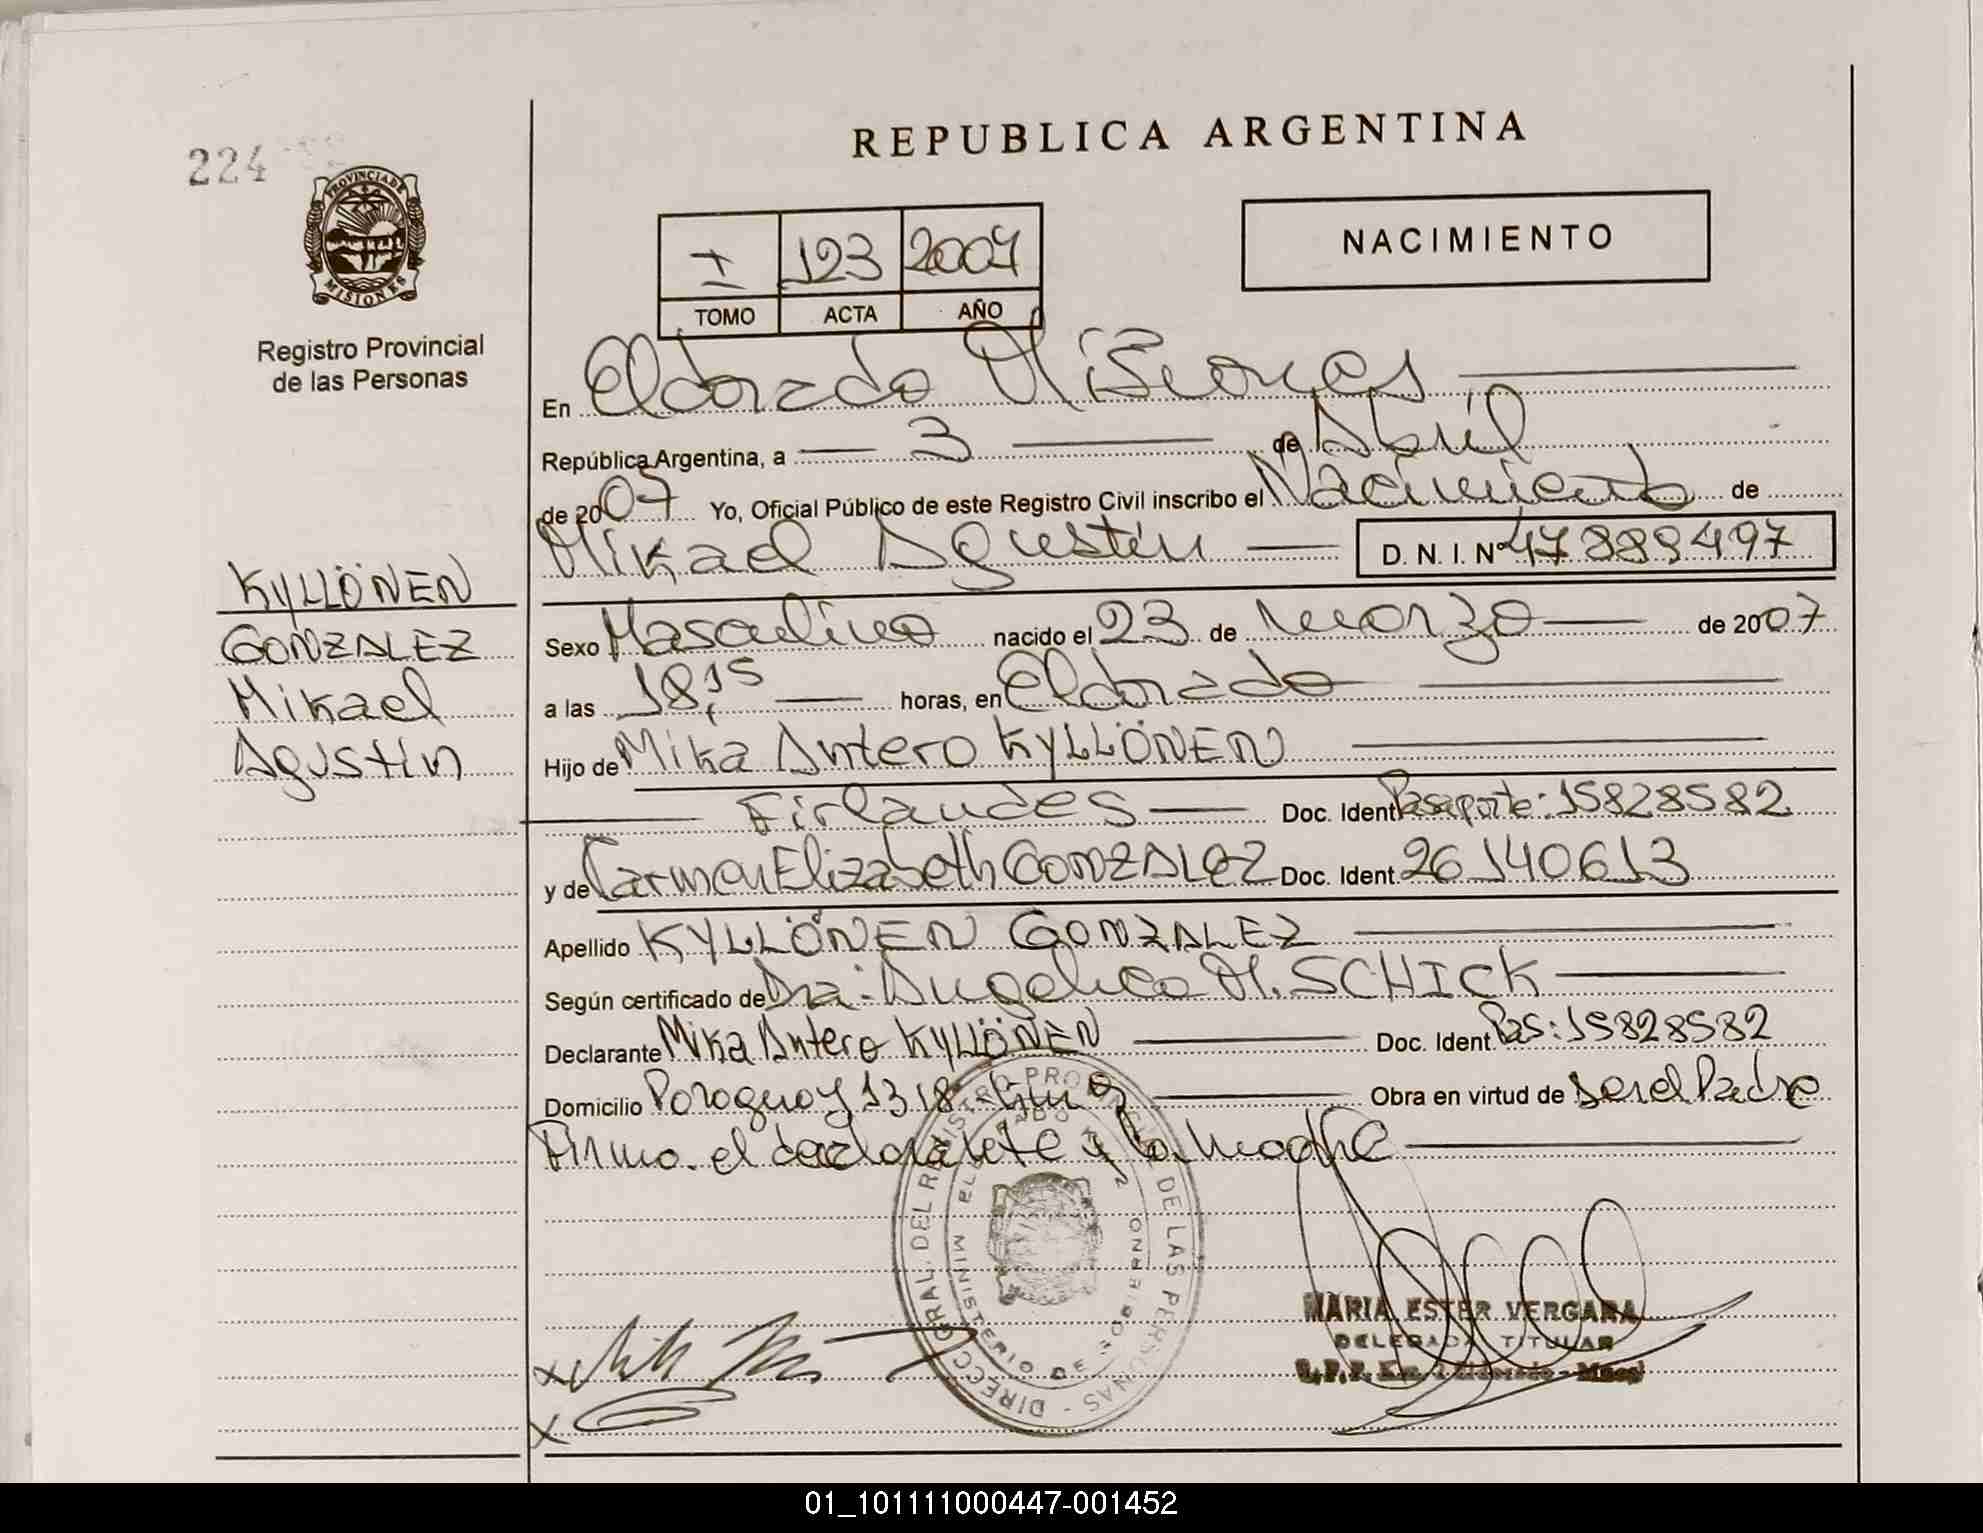 224
REPUBLICA ARGENTINA
PROVINCIA DE
MISIONES
Registro Provincial
de las Personas
I 123 2007
TOMO ACTA AÑO
NACIMIENTO
En Eldorado Misiones
República Argentina, a 3 de Abril
de 2007 Yo, Oficial Público de este Registro Civil inscribo el Nacimiento de
Mikael Agustín D. N. I. Nº 47889497
KYLLÖNEN
GONZALEZ
Mikael
Agustin
Sexo Masculino nacido el 23 de marzo de 2007
a las 18,15 horas, en Eldorado
Hijo de Mika Antero KYLLÖNEN
Finlandes Doc. Ident Pasaporte: 15828582
y de Carmen Elizabeth GONZALEZ Doc. Ident. 26140613
Apellido KYLLÖNEN GONZALEZ
Según certificado de Dra. Angelica M. SCHICK
Declarante Mika Antero KYLLÖNEN Doc. Ident Pas: 15828582
Domicilio Paraguay 1318 Obra en virtud de ser el Padre
Firma el declarante y la madre
DIRECC. GRAL. DEL REGISTRO PROVINCIAL DE LAS PERSONAS
MINISTERIO DE GOBIERNO
MARIA ESTER VERGARA
DELEGADA TITULAR
01_101111000447-001452